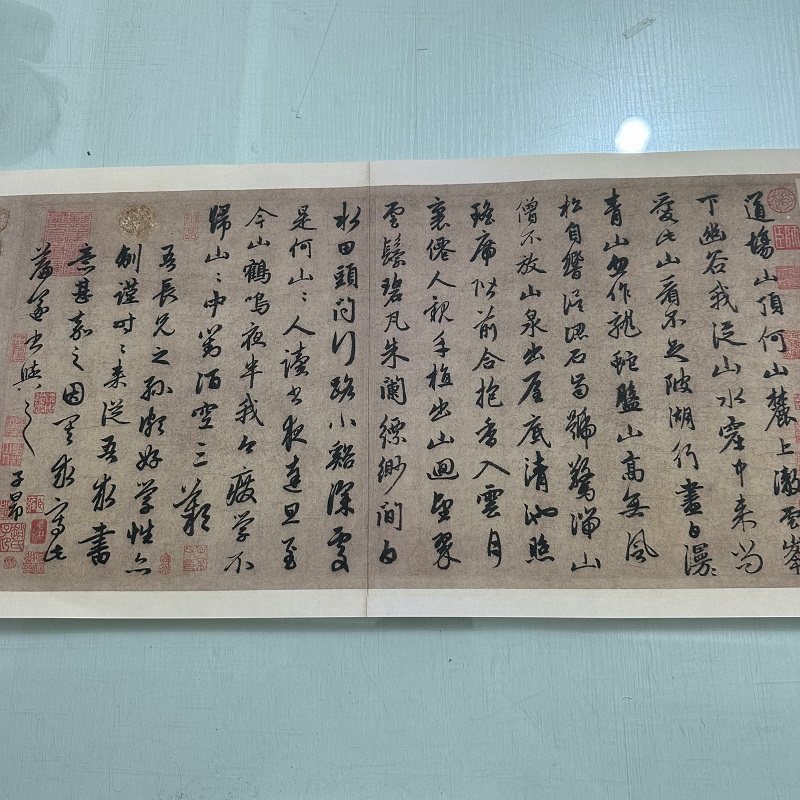 道場山頂何山麓上澈雲峯
下幽谷我從山水窟中来尚
愛此山看不足陂湖行盡白漫〻
青山忽作龍蛇盤山高無風
松自響誤認石齒號驚湍山
僧不放山泉出屋底清池照
瑤席階前合抱香入雲月
裏僊人親手植出山迴望翠
雲鬟碧瓦朱闌縹緲間白
水田頭問行路小谿深處
是何山〻人讀書夜達旦至
今山鶴鳴夜半我今廢學不
歸山〻中對酒空三歎
吾長兄之孫好学性亦
謹時〻来從吾求書
意甚嘉之因其求寫此
遂書與之
子昂